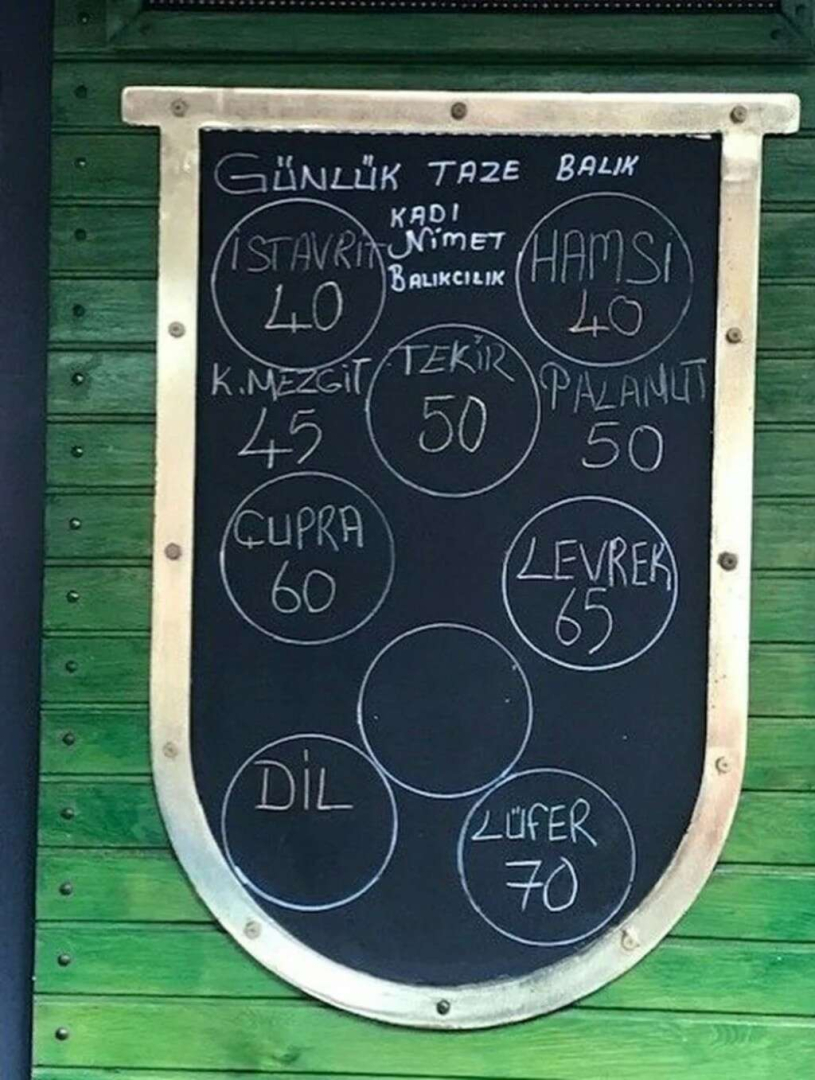 GÜNLÜK TAZE BALIK
KADI
NİMET
BALIKCILIK
İSTAVRİT
40
HAMSİ
40
K.MEZGİT
45
TEKİR
50
PALAMUT
50
ÇUPRA
60
LEVREK
65
DİL
LÜFER
70